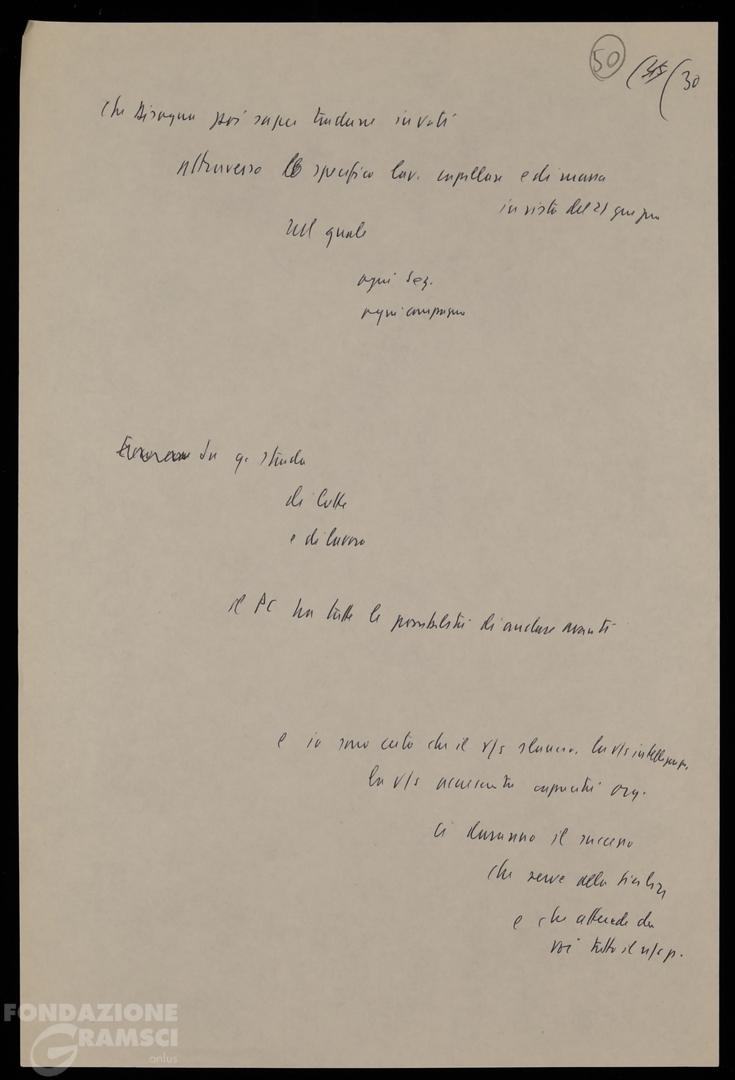 50 (45 (30
che bisogna poi saper tradurre in voti
attraverso lo specifico lav. capillare e di massa
in vista del 21 giugno
nel quale
ogni sez.
ogni compagno
Su q. strada
di lotte
e di lavoro
il PC ha tutte le possibilità di andare avanti
e io sono certo che il v/s slancio, la v/s intelligenza,
la v/s accresciuta capacità org.
ci daranno il successo
che serve alla Sicilia
e che attende da
voi tutto il n/s p.
FONDAZIONE
GRAMSCI
onlus